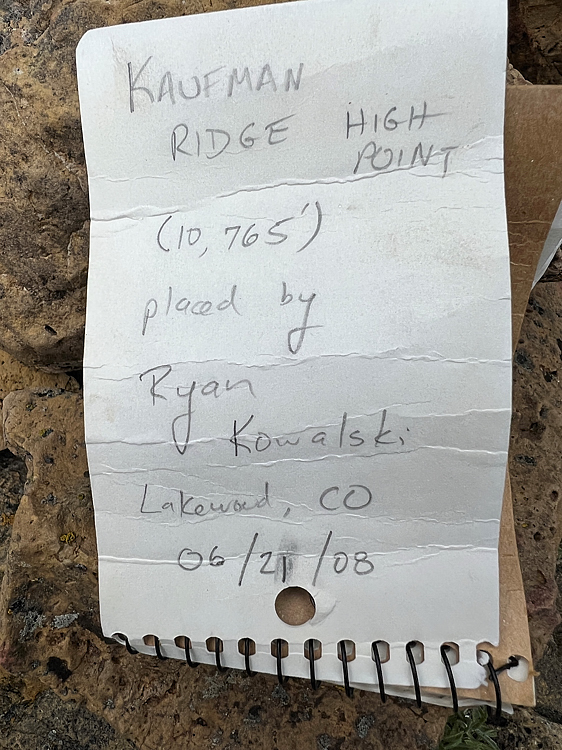 KAUFMAN
RIDGE HIGH
POINT
(10,765')
placed by
Ryan
Kowalski
Lakewood, CO
06/21/08